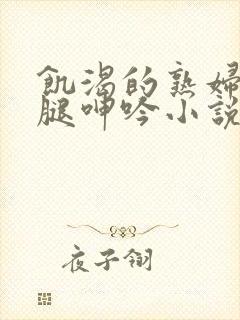 飢渴的熟婦
腿呻吟小說
夜子翎